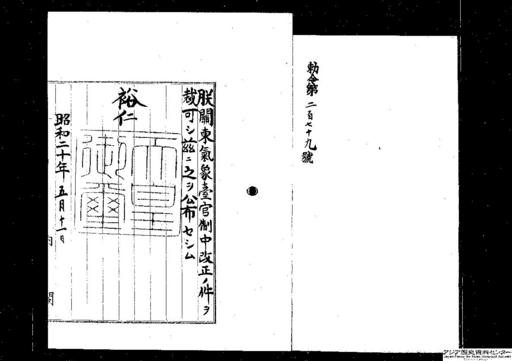 勅令第二百七十九號
朕關東氣象臺官制中改正ノ件ヲ
裁可シ茲ニ之ヲ公布セシム
裕仁
天皇御璽
昭和二十年五月十一日
内閣
アジア歴史資料センター